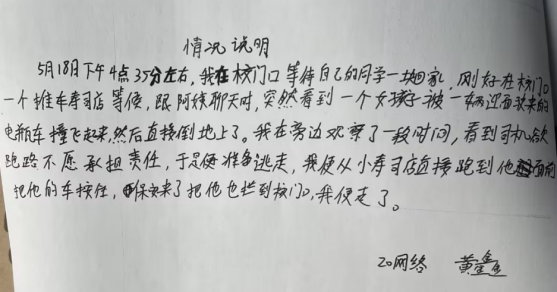 情况说明
5月18日下午4点35分左右,我在校门口等待自己的同学一块回家,刚好在校门口
一个推车寿司店等候,跟阿姨聊天时,突然看到一个女孩子被一辆迎面来的
电瓶车撞飞起来,然后直接倒地上了。我在旁边观察了一段时间,看到司机欲
跑路不愿承担责任,于是便准备逃走,我便从小寿司店直接跑到他面前
把他的车按住,保安来了把他也拦到校门口,我便走了。
20网络 黄鑫